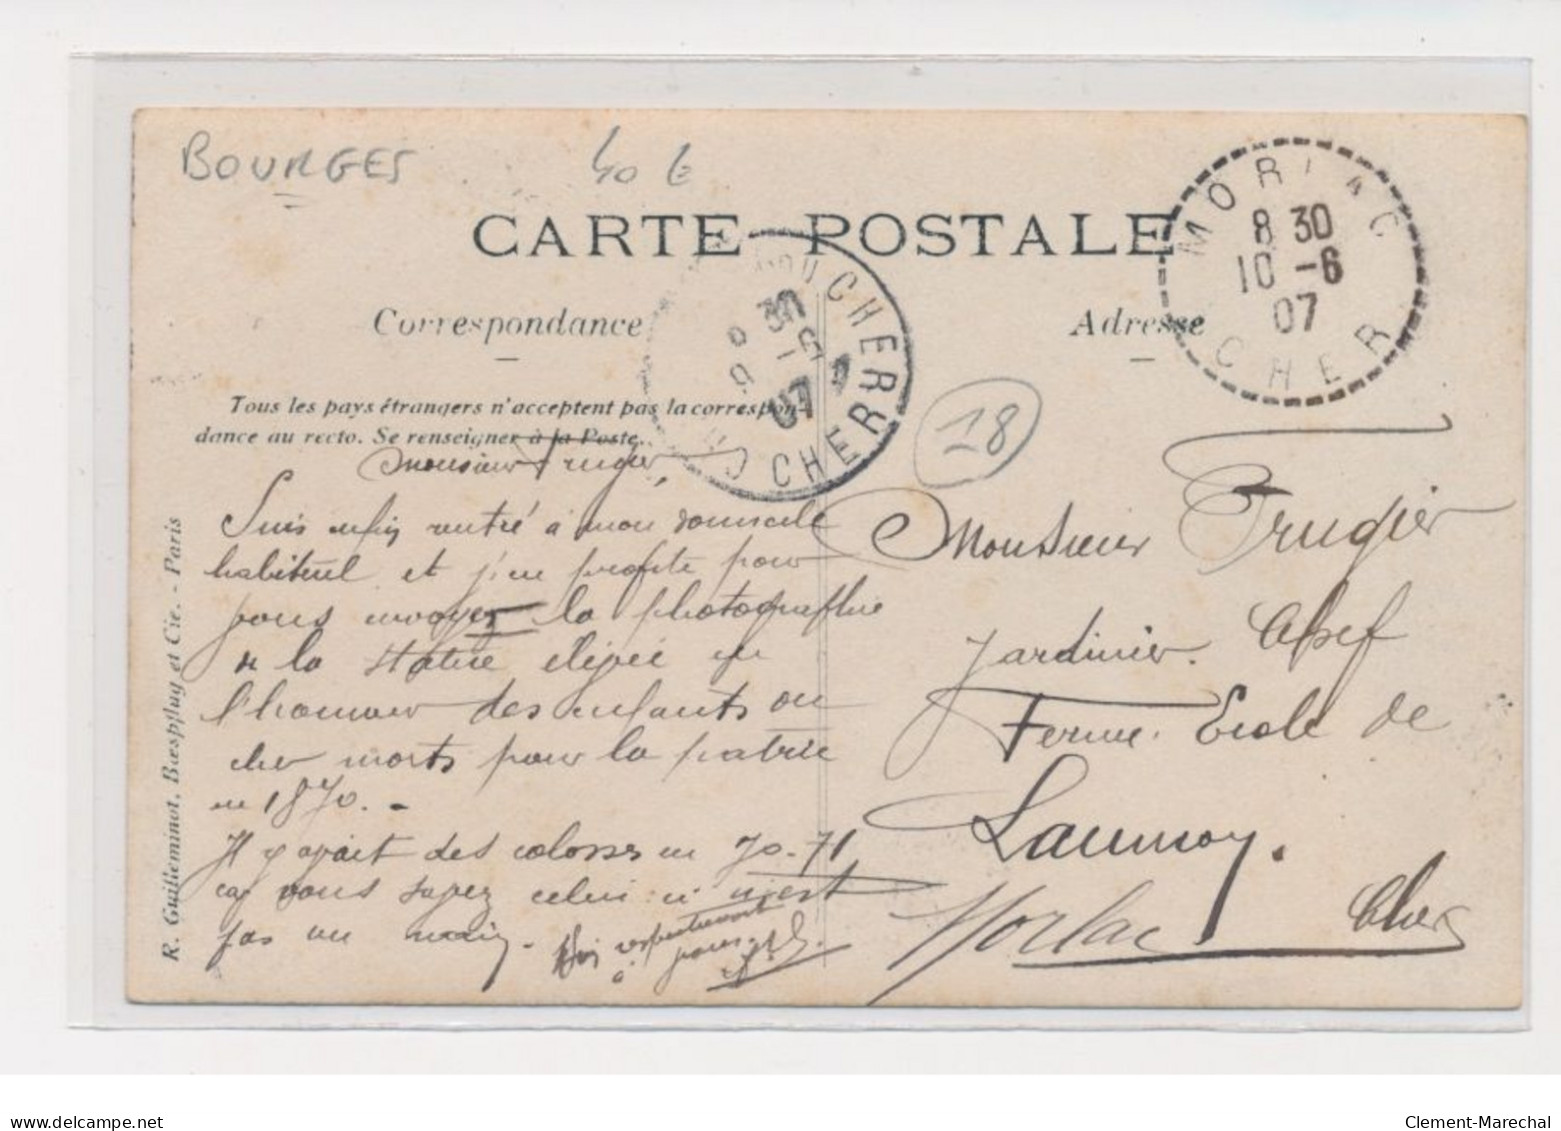 BOURGES
40 €
CARTE POSTALE
MORLAC
8 30
10 -6
07
CHER
CHER
07
CHER
Correspondance
Adresse
Tous les pays étrangers n'acceptent pas la correspon-
dance au recto. Se renseigner à la Poste.
18
Monsieur Frugier,
Suis enfin rentré à mon domicile
habituel et j'en profite pour
vous envoyer la photographie
de la statue élevée en
l'honneur des enfants du
cher morts pour la patrie
en 1870. -
Il y avait des colosses en 70-71
car vous savez celui ci n'est
pas un nain.
respectueuses
à
Monsieur Frugier
Jardinier Chef
Ferme. Ecole de
Launoy.
Morlac Cher
R. Guilleminot, Bœspflug et Cie. - Paris
delcampe.net
Clement-Marechal